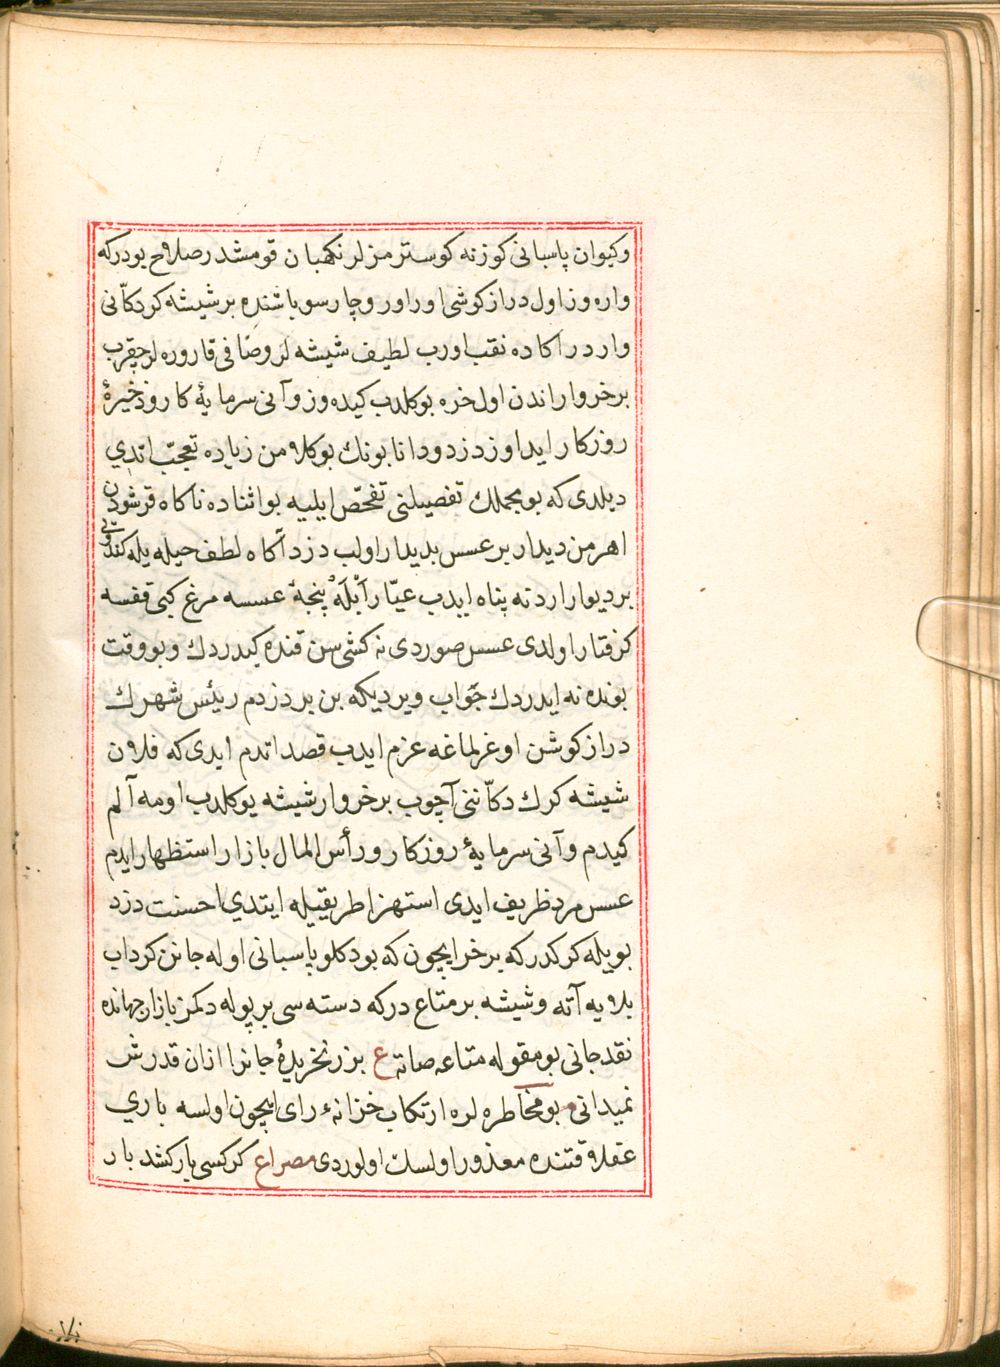 وكیوان پاسبانی كوزنه كوسترمزلر نكهبان قومشدر صلاح بودركه
واره‌وز اول درازكوشی اوراوز وچارسو باشنده بر شیشه كر دكانی
وارد راكا ده نقب اورب لطیف شیشه لر وصافی قاروره لر چقرب
بر خروار اندن اول خره یوكلدب كیده‌وز وآنی سرمایۀ كار وذخیرۀ
روزكار ایداوز دزد ودانا بونك بو كلامندن زیاده تعجّب اتدی
دیلدی كه بو مجملك تفصیلنی تفحّص ایلیه بو اثناده ناكاه قرشودن
اهرمن دیدار بر عسس بدیدار اولب دزد آكاه لطف حیله یله كندوی
بر دیوار اردنه پناه ایدب عیّار ابله پنجۀ عسسه مرغ كبی قفسه
كرفتار اولدی عسس صوردی نه كشی سن قنده كیدردك وبو وقت
بونده نه ایدردك جواب ویردیكه بن بر دزدم رئیس شهرك
درازكوشن اوغرلماغه عزم ایدب قصد اتدم ایدی كه فلان
شیشه كرك دكاننی آچوب بر خروار شیشه یوكلدب اومه آلم
كیدم وآنی سرمایۀ روزكار ورأس المال بازار استظهار ایدم
عسس مرد ظریف ایدی استهزا طریقیله ایتدی احسنت دزد
بویله كركدر كه بر خر ایچون كه بو دكلو پاسبانی اوله جانن كرداب
بلایه آته وشیشه بر متاع دركه دسته سی بر پوله دكمز بازار جهانده
نقد جانی بو مقوله متاعه صاته ع بزر نخریدۀ جانرا ازان قدرش
نمیدانی بو مخاطره لره ارتكاب خزانۀ رای ایچون اولسه باری
عقلا قتنده معذور اولسك اولوردی مصراع كر كسی بار كشد بار